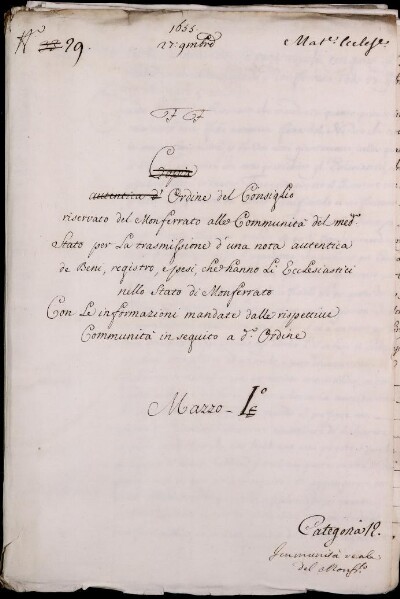 N° 29.
1655
27 9mbre
Mat.e Eccles.e
F F
Copia
autentica d' Ordine del Consiglio
riservato del Monferrato alle Communità del med.o
Stato per La trasmissione d'una nota autentica
de Beni, registro, e pesi, che hanno Li Ecclesiastici
nello Stato di Monferrato
Con Le informazioni mandate dalle rispettive
Communità in seguito a d.o Ordine
Mazzo - I.o
Categoria 12.
Immunità reale
del Monf.to